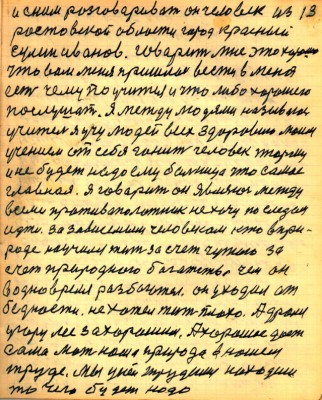 и с ним розговариват он человек из 13
ростовской области город красный
сулин иванов. говорит мне это хорошо
что вам меня пришлось вести в меня
ест чему поучится и что либо хорошего
послушат. Я между людями называюс
учител я учу людей всех здоровию моим
учением от себя гонит человек
и не будет надо ему болница это самое
главная. я говорит он являюс между
всеми противаположник не хочу последам
идти. за зависемым человеком кто в при-
роде научился жит за счет чужого за
счет природного багатства, чем он
водно время разбогател. он уходил от
бедности. не хотел жит плохо. А дрался
у гору лес за хорошим. А хорошое дает
сама мат наша природа в нашем
труде. Мы цией трудимся находим
то чего будет надо